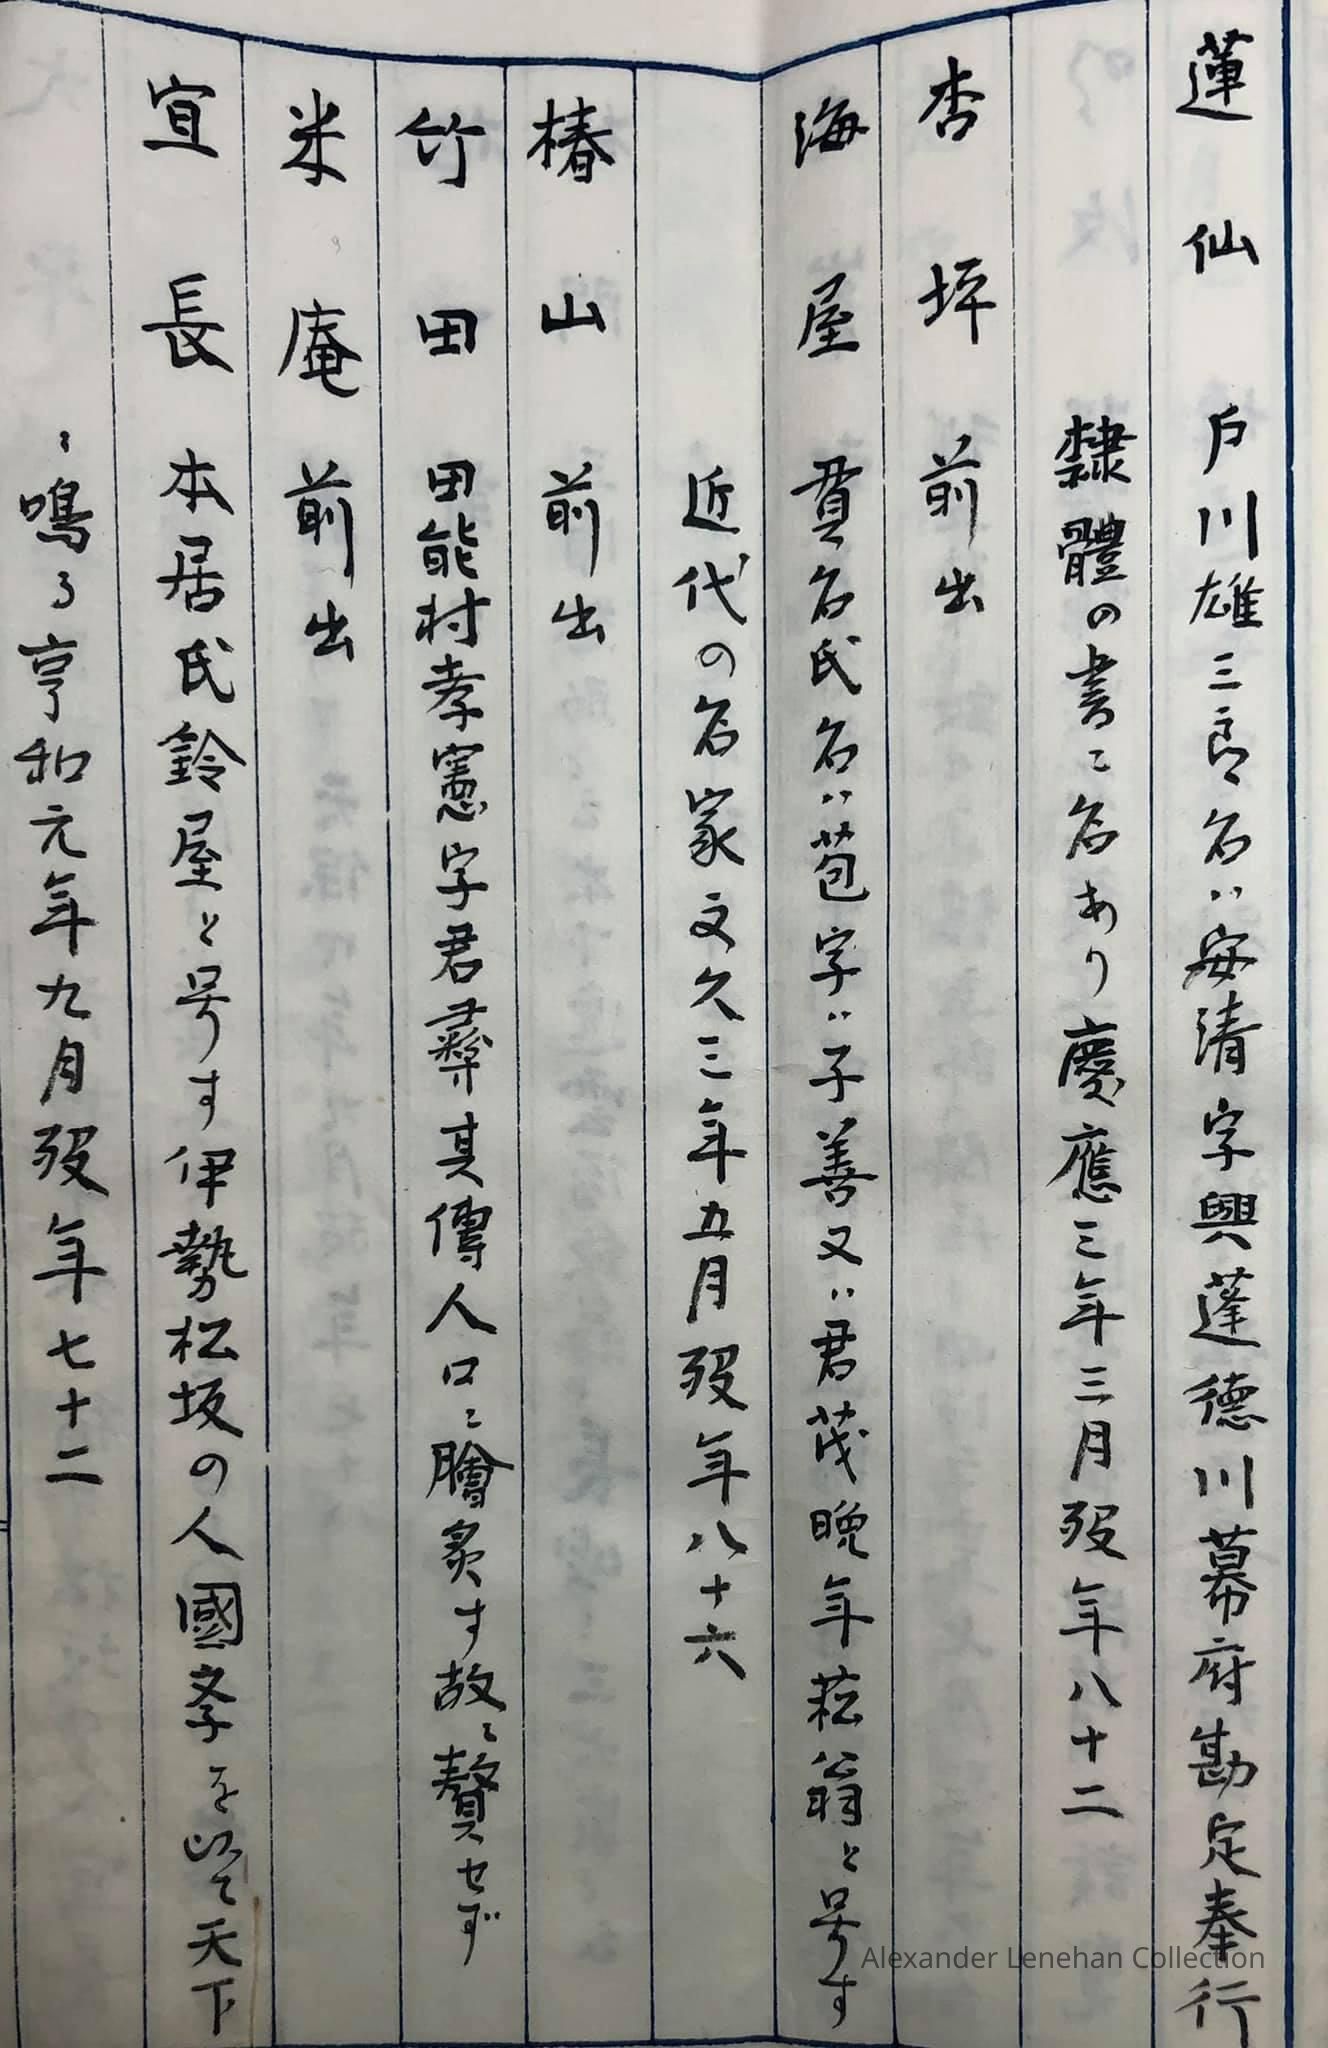 蓮仙 戸川雄三郎名ハ安清字興蓬徳川幕府勘定奉行
隸體の書ニ名あり慶應三年三月歿年八十二
杏坪 前出
海屋 貫名氏名ハ苞字ハ子善又ハ君茂晩年菘翁と号す
近代の名家文久三年五月歿年八十六
椿山 前出
竹田 田能村孝憲字君彜其傳人口ニ膾炙す故ニ贅せず
米庵 前出
宣長 本居氏鈴屋と号す伊勢松坂の人國学を以て天下
ニ鳴る亨和元年九月歿年七十二
Alexander Lenehan Collection